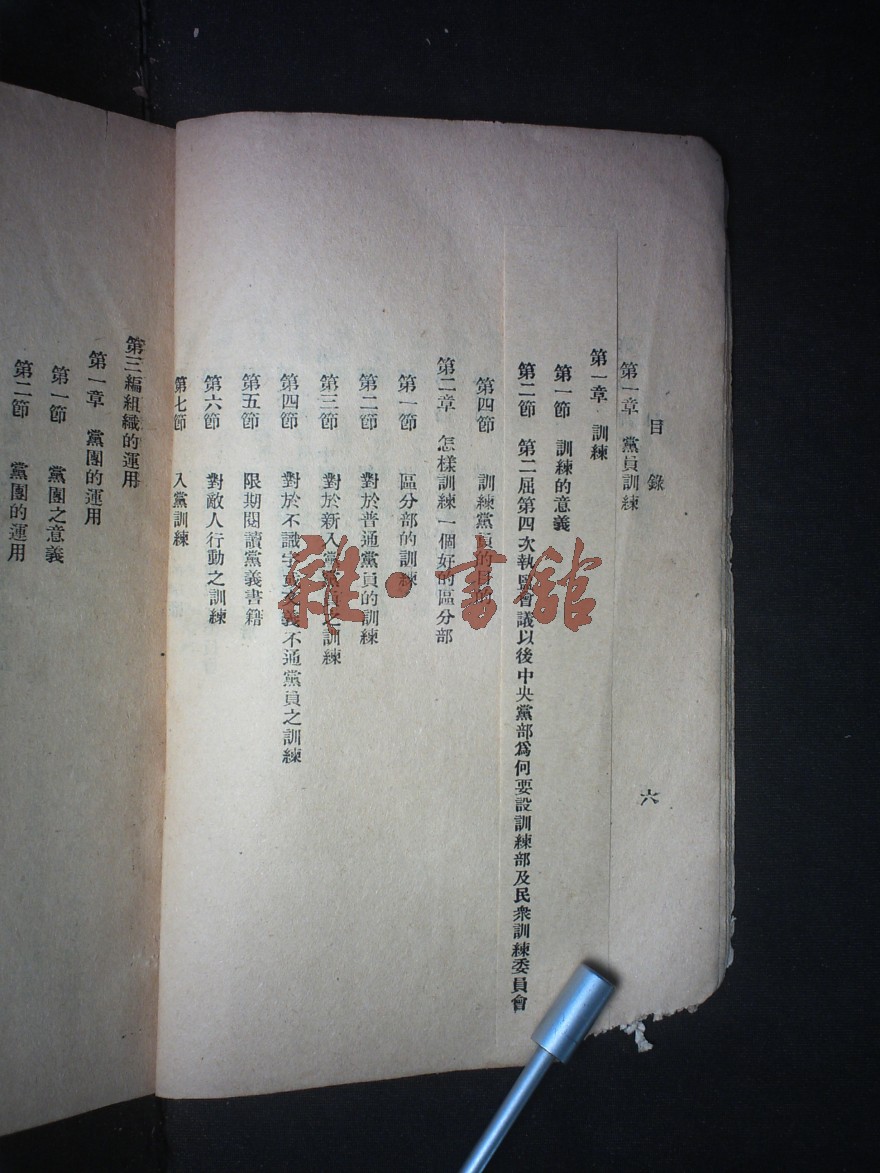 目錄
六
第一章 黨員訓練
第一章 訓練
第一節 訓練的意義
第二節 第二届第四次執監會議以後中央黨部爲何要設訓練部及民衆訓練委員會
第四節 訓練黨員的目的
第二章 怎樣訓練一個好的區分部
第一節 區分部的訓練
第二節 對於普通黨員的訓練
第三節 對於新入黨黨員之訓練
第四節 對於不識字或文義不通黨員之訓練
第五節 限期閱讀黨義書籍
第六節 對敵人行動之訓練
第七節 入黨訓練
第三編組織的運用
第一章 黨團的運用
第一節 黨團之意義
第二節 黨團的運用
雜·書館